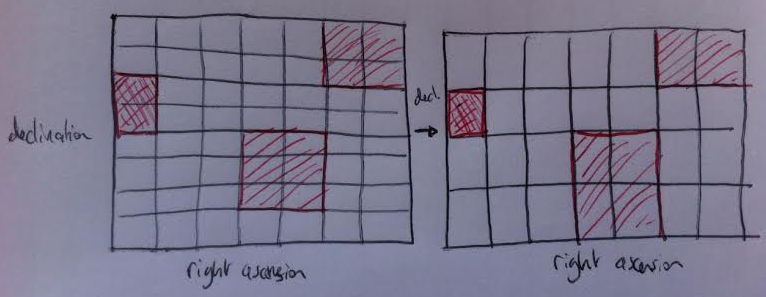 declination
decl.
right ascension
right ascension